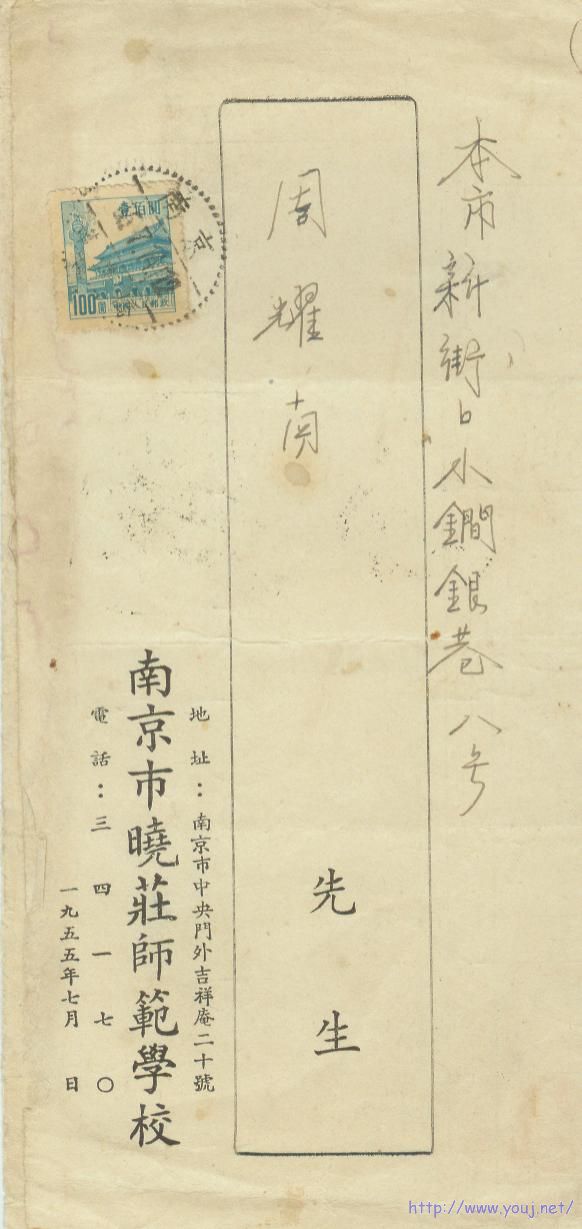 本市新街口小鐧銀巷八号
周耀南
先生
地址：南京市中央門外吉祥庵二十號
南京市曉莊師範學校
電話：三四一七〇
一九五五年七月 日
壹百圆
100圓
中国人民郵政
南京
http://www.youj.net/